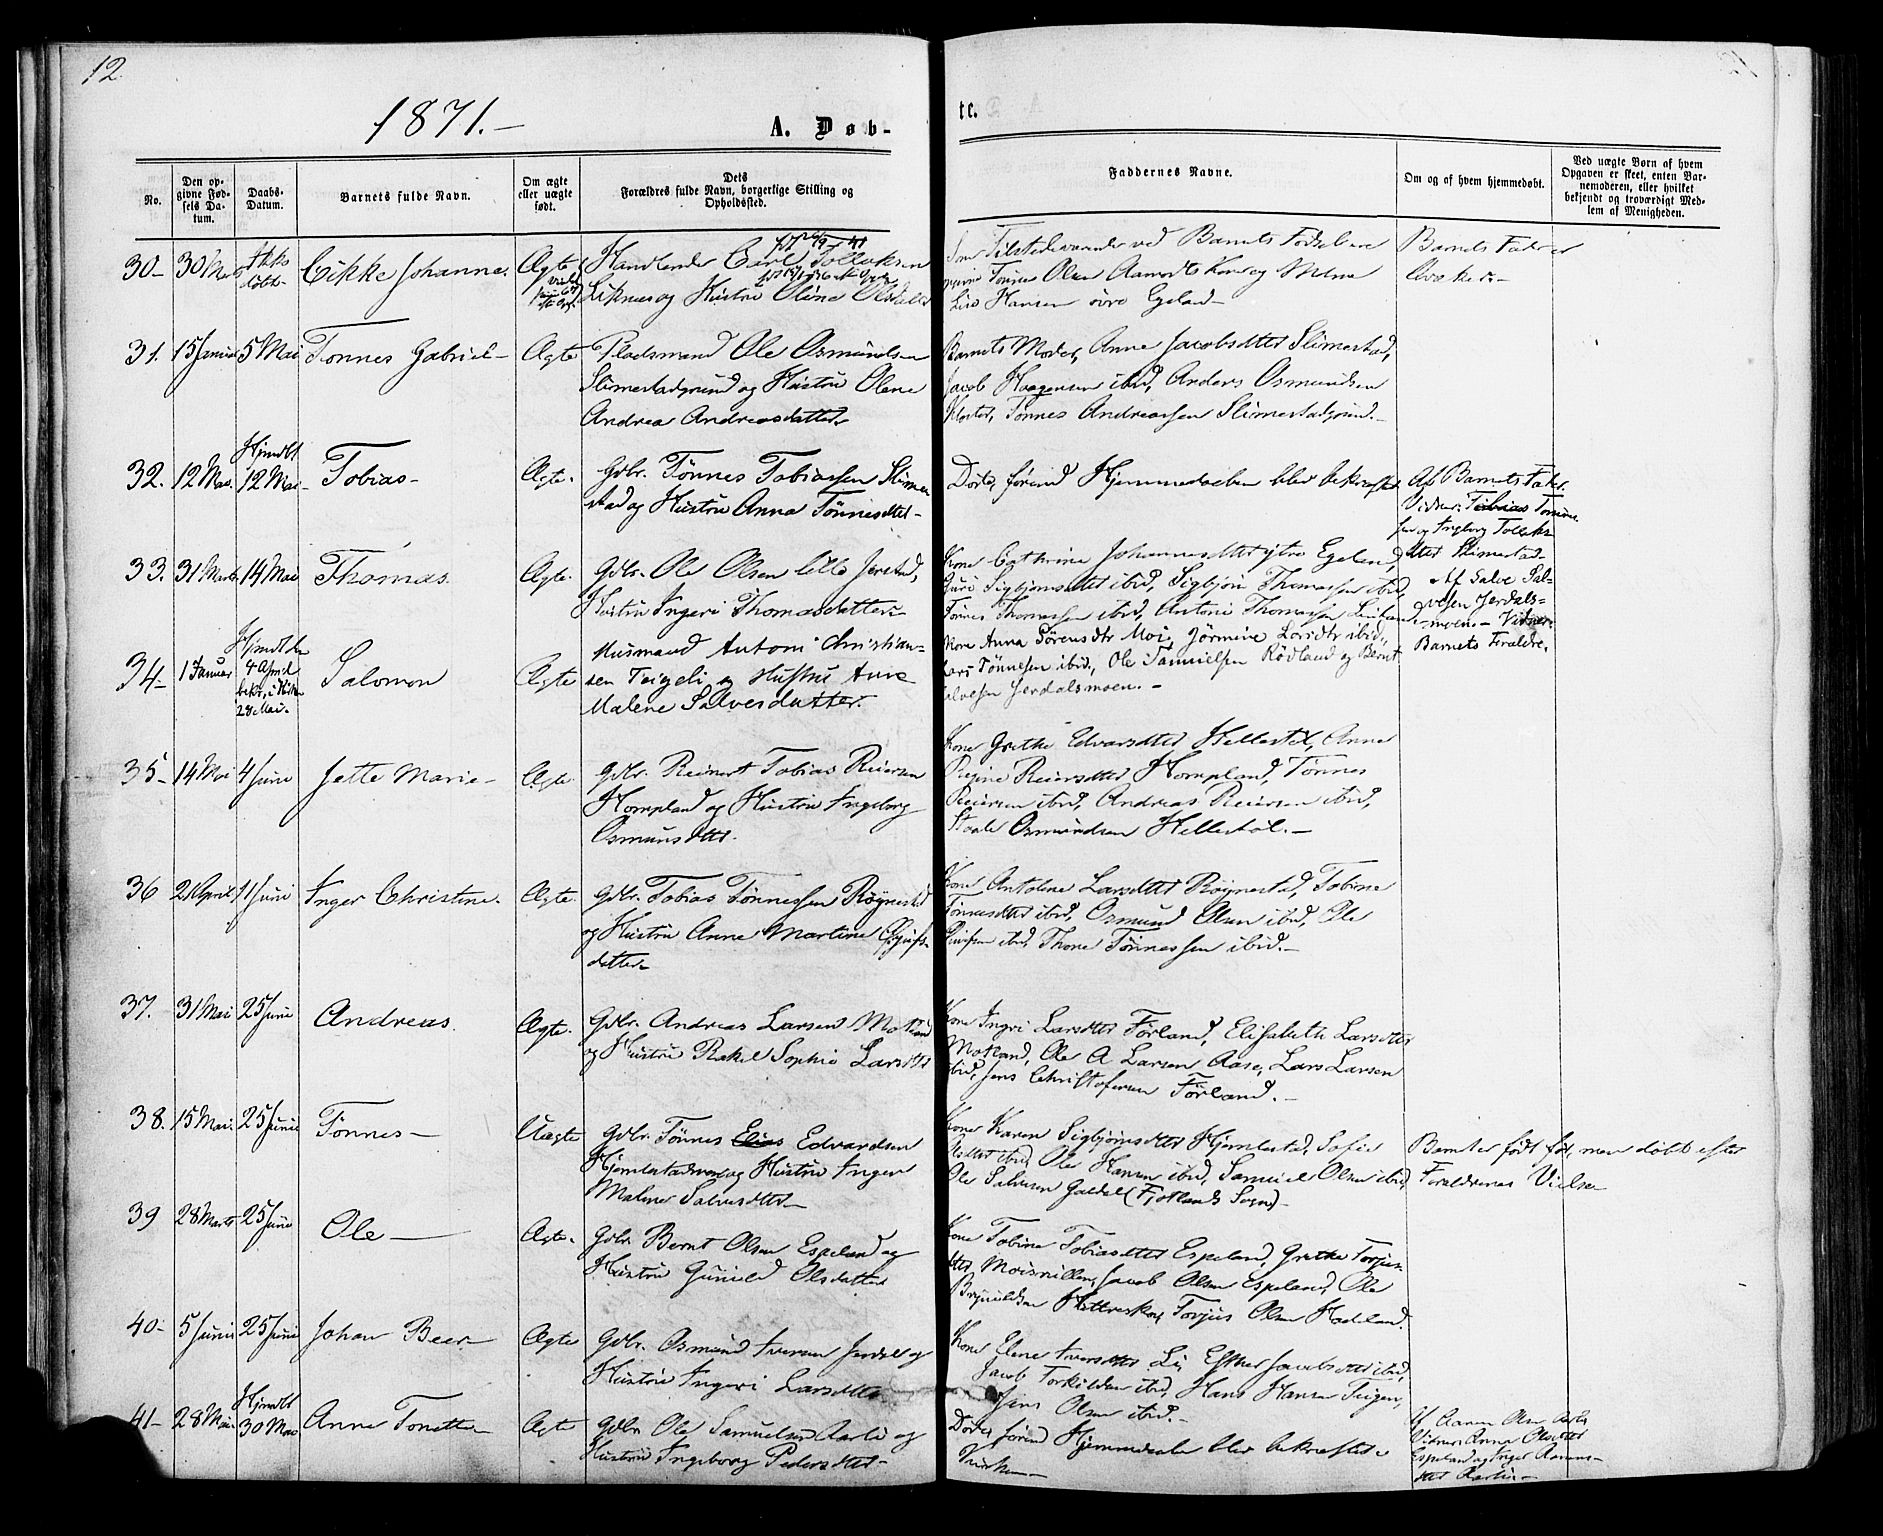 12
1871.-
A. Døb-
te.
No.
Den op-
givne Fød-
sels Da-
tum.
Daabs-
Datum.
Barnets fulde Navn.
Om ægte
eller uægte
født.
Dets
Forældres fulde Navn, borgerlige Stilling og
Opholdssted.
Faddernes Navne.
Om og af hvem hjemmedøbt.
Ved uægte Børn af hvem
Opgaven er skeet, enten Bar-
nemoderen, eller hvilket
bekjendt og troværdigt Med-
lem af Menigheden.
30- 30 Mars Ikke
døbt- Cikke Johanne. Ægte
Handlende Carl Tollaksen
Liknes og Hustru Oline Olsdatter
Som Tilstedeværende ved Barnets Fødsel ere
Tønnes Olsen Aamodts Kone og
Hansen øvre Egeland-
Barnets Fader er
Qvæker.-
31. 15 Januar 5 Mai Tønnes Gabriel- Ægte
Pladsmand Ole Osmundsen
Slimestadgrund og Hustru Olene
Andrea Andreasdatter.
Barnets Moder, Anne Jacobsdtter Slimestad,
Jacob Haagensen ibid, Anders Osmundsen
Kloster, Tønnes Andreassen Slimestadgrund.-
32. 12 Mai Hjmdbt
12 Mai- Tobias- Ægte.
Gdbr. Tønnes Tobiassen Slime-
stad og Hustru Anna Tønnesdtter-
Døde, førend Hjemmedaaben blev bekræftet
Af Barnets Fader.
Vidner: Tobias Tønne-
sen og Ingborg Tollaks-
dtter Slimestad-
33. 31 Marts 14 Mai Thomas. Ægte.
Gdbr. Ole Olsen lille Jerstad,
Hustru Ingeri Thomasdatter-
Kone Cathrine Johannesdtter ytre Egeland,
Guri Sigbjørnsdtter ibid, Sigbjørn Thomassen ibid,
Tønnes Thomassen ibid, Antoni Thomassen
34- 1 Januar Hjmdbt den
4 April
bekr. i Kirken
28 Mai. Salomon Ægte
Husmand Antoni Christian-
sen Teigeli og Hustru Anne
Malene Salvesdatter.
Kone Anna Sørensdtr Moi, Jørmine Larsdtr ibid.,
Lars Tønnesen ibid., Ole Samuelsen Rødland og Bernt
Salvesen Jerdalsmoen.-
Af Salve Sal-
vesen Jerdals-
moen.- Vidner:
Barnets Foraldre.
35- 14 Mai 4 Juni Jette Marie- Ægte
Gdbr. Reinert Tobias Reiersen
Hompland og Hustru Ingeborg
Osmundsdtter.
Kone Grethe Edvarsdtter Hellestøl, Anne
Regine Reiersdtter Hompland, Tønnes
Reiersen ibid, Andreas Reiersen ibid,
Staale Osmundsen Hellestøl.-
36 2 April 11 Juni Inger Christine. Ægte.
Gdbr. Tobias Tønnessen Røynestad
og Hustru Anne Martine
datter-
Kone Antolene Larsdtter Røynestad, Tobine
Tønnesdtter ibid, Osmund Olsen ibid, Ole
ibid, Thore Tønnessen ibid.-
37. 31 Mai 25 Juni Andreas. Ægte.
Gdbr. Andreas Larsen Motland
og Hustru Rakel Sophie Larsdtter
Kone Ingri Larsdtter Førland, Elisabeth Larsdtter
Motland, Ole A Larsen Aase, Lars Larsen
ibid, Jens Christofersen Førland.-
38. 15 Mai. 25 Juni Tønnes- Uægte
Gdbr. Tønnes Elias Edvardsen
og Hustru Inger
Malene Salvesdtter-
Kone Karen Sigbjørnsdtter Hjemlestad, Sofie
ibid, Ole Hansen ibid, Samuel Olsen ibid,
Ole Salvesen Galdal (Fjotlands Sogn)-
Barnet er født før, men døbt efter
Foraldrenes Vielse
39 28 Marts 25 Juni Ole- Ægte.
Gdbr. Bernt Olsen Espeland og
Hustru Gunild Olsdatter
Kone Tobine Tobiasdtter Espeland, Grethe Torjus-
dtter Jacob Olsen Espeland, Ole
Torjus Olsen
40- 5 Juni 25 Juni Johan Beer- Ægte
Gdbr. Osmund Iversen Jerdal og
Hustru Ingeri Larsdtter
Kone Elene Iversdtter Li, Esther Jacobsdtter ibid,
Jacob Torkildsen ibid, Hans Hansen Teigen,
Jens Olsen ibid.-
41- 28 Mai. Hjmdbt
30 Mai Anne Tonette- Ægte
Gdbr. Ole Samuelsen Aarli og
Hustru Ingeborg Pedersdtter-
Døde, førend Hjemmedaaben blev bekræftet i
Kirken-
Af Aanen Olsen Aarli,
Vidner: Anna Olsdtter
Espeland og Inger Aanens-
dtter Aarli-